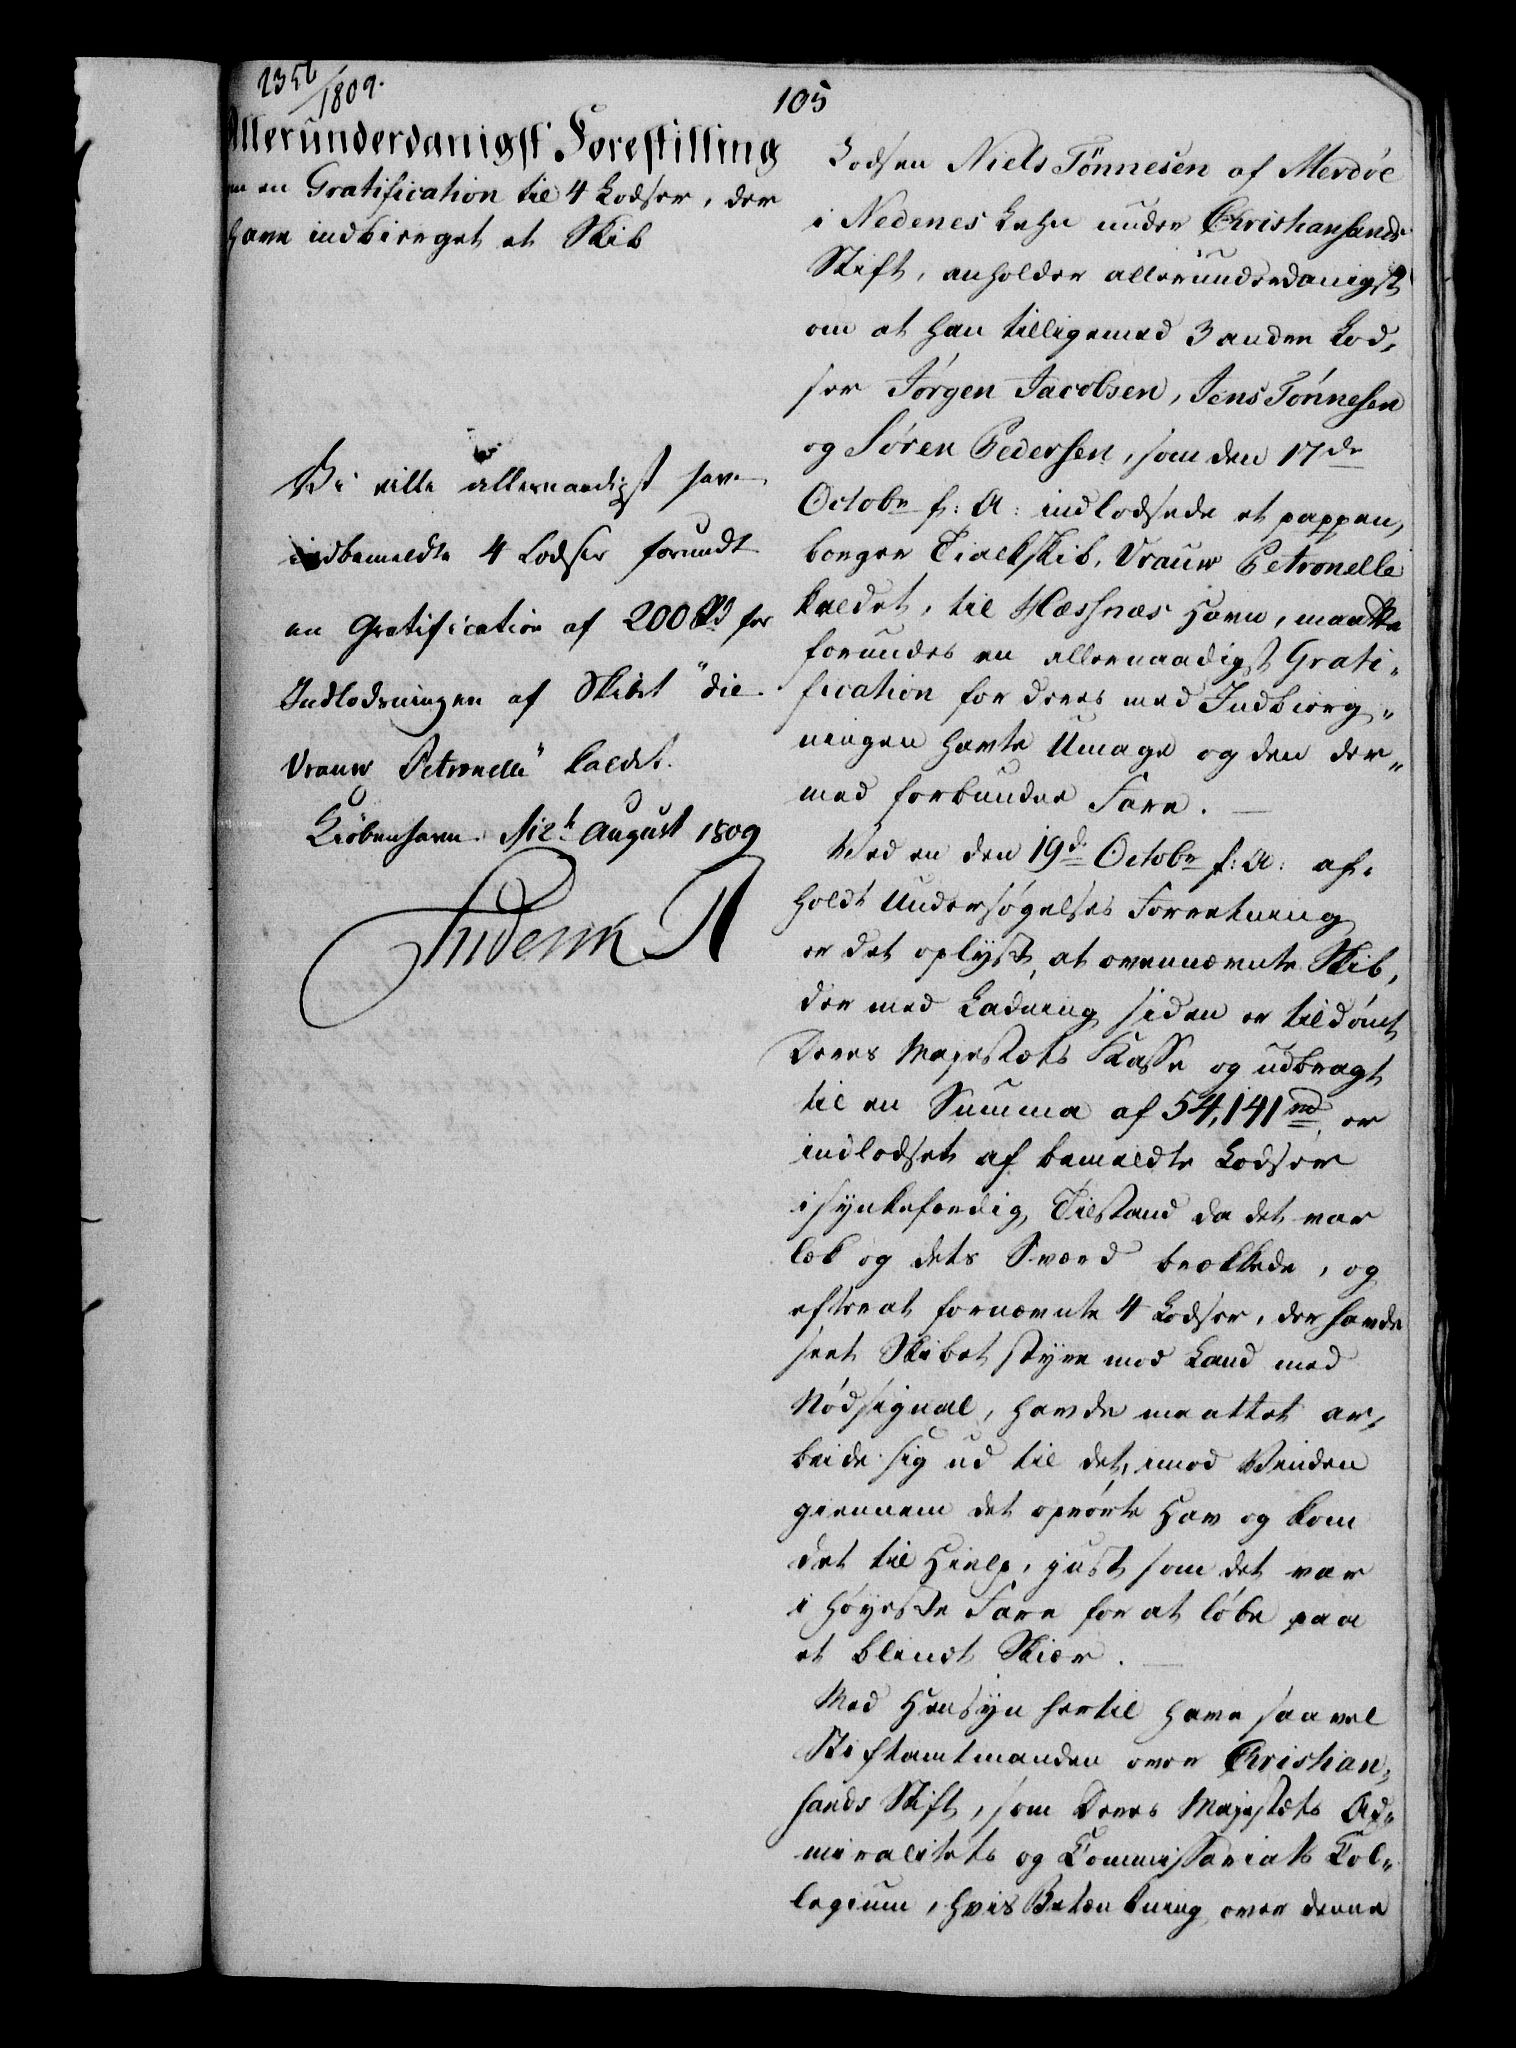 2356/1809.
105
Allerunderdanigst Forestilling
om en Gratification til 4 Lodser, der
have indbierget et Skib
Vi ville allernaadigst have
indbemeldte 4 Lodser forundt
en Gratification af 200 Rd for
Indlodsningen af Skibet "die
Vrauw Petronelle" kaldet.
Kiöbenhavn August 1809
Friderik R
Lodsen Niels Tönnesen af Merdöe
i Nedenes Lehn under Christiansands
Stift, anholder allerunderdanigst
om at han tilligemed 3 andre Lod-
ser Jörgen Jacobsen, Jens Tönnesen
og Sören Pedersen, som den 17de
Octobr f: A: indlodsede et pappen-
borger Tialkskib, Vrauw Petronelle
kaldet, til Hæsnæs Havn, maatte
forundes en allernaadigst Grati-
fication for deres med Indbierg-
ningen havte Umage og den der-
med forbundne Fare.
Ved en den 19de Octobr f: A: af-
holdt Undersögelses Forretning
er det oplyst, at ovennævnte Skib,
der med Ladning siden er tildömt
Deres Majestæts Kasse og udbragt
til en Summa af 54,141 rd, er
indlodset af bemeldte Lodser
i synkefærdig Tilstand da det var
læk og dets Sværd brækkede, og
efterat fornævnte 4 Lodser, der havde
seet Skibet styre mod Land med
Nödsignal, havde maattet ar-
beide sig ud til det, imod Vinden
giennem det oprörte Hav og kom
det til Hielp, just som det var
i höyeste Fare for at löbe paa
et blindt Skiær.
Med Hensyn hertil have saavel
Stiftamtmanden over Christian-
sands Stift, som Deres Majestæts Ad-
miralitets og Commissariats Col-
legium, hvis Betænkning over denne